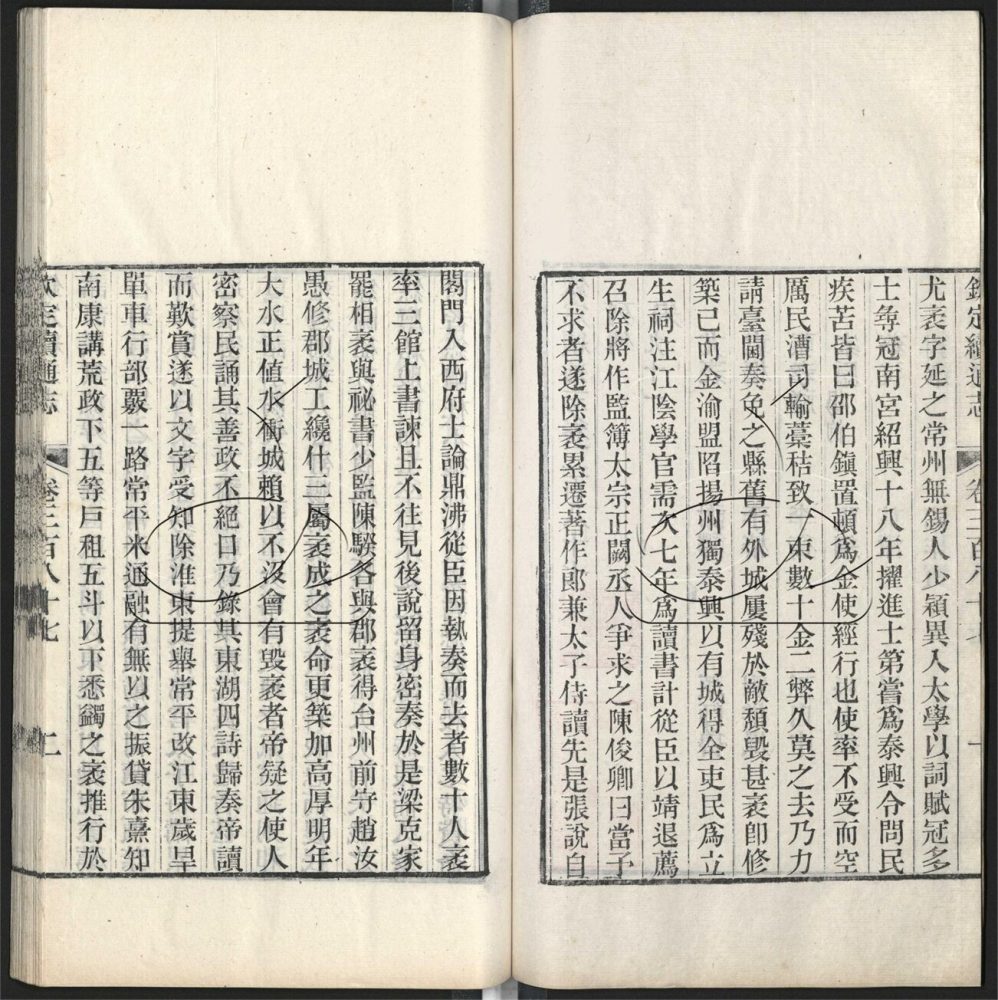 欽定續通志 卷三百八十七 一
尤袤字延之常州無錫人少穎異入太學以詞賦冠多
士等冠南宮紹興十八年擢進士第嘗爲泰興令問民
疾苦皆曰邵伯鎮置頓爲金使經行也使率不受而空
厲民漕司輸藁秸致一束數十金二弊久莫之去乃力
請臺閫奏免之縣舊有外城屢殘於敵頹毀甚袤卽修
築已而金渝盟陷揚州獨泰興以有城得全吏民爲立
生祠注江陰學官需次七年爲讀書計從臣以靖退薦
召除將作監簿太宗正闕丞人爭求之陳俊卿曰當予
不求者遂除袤累遷著作郎兼太子侍讀先是張說自
閣門入西府士論鼎沸從臣因執奏而去者數十人袤
率三館上書諫且不往見後說留身密奏於是梁克家
罷相袤與祕書少監陳騤各與郡袤得台州前守趙汝
愚修郡城工纔什三屬袤成之袤命更築加高厚明年
大水正值水衝城賴以不沒會有毀袤者帝疑之使人
密察民誦其善政不絕口乃錄其東湖四詩歸奏帝讀
而歎賞遂以文字受知除淮東提舉常平改江東歲旱
單車行部覈一路常平米通融有無以之振貸朱熹知
南康講荒政下五等戶租五斗以下悉蠲之袤推行於
欽定續通志 卷三百八十七 二